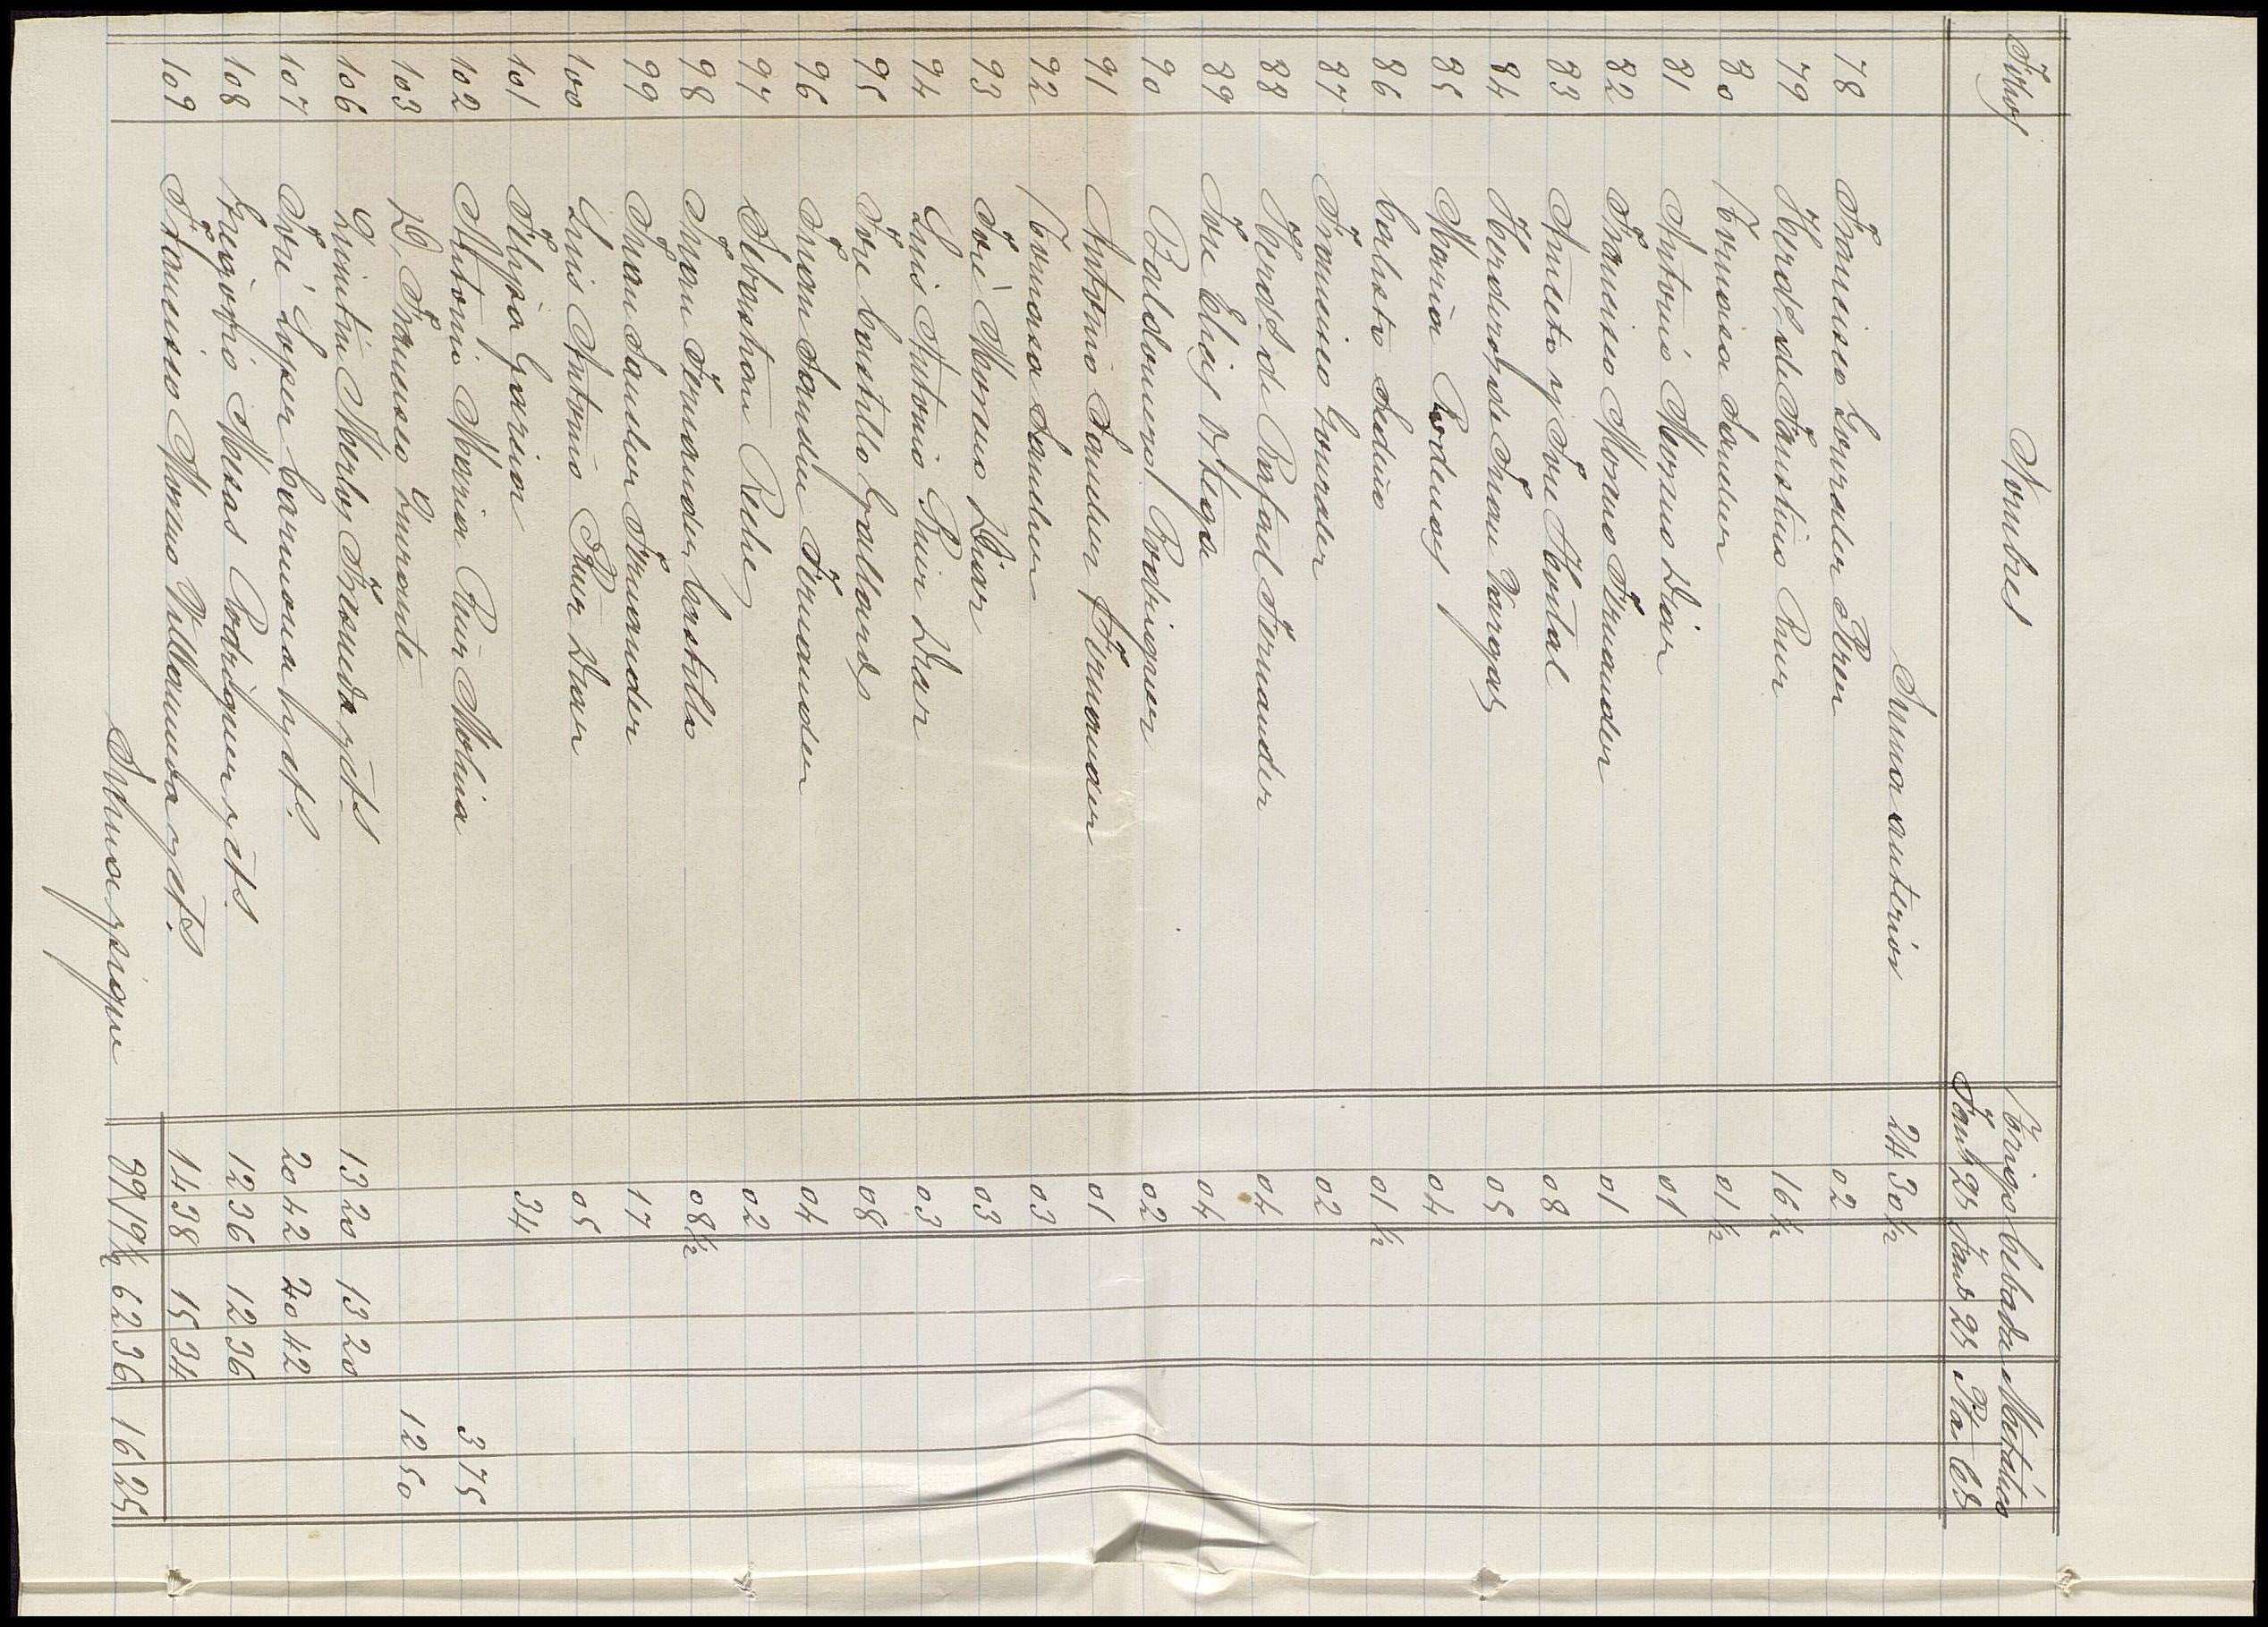 Folios Nombres Trigo Cebada Metalico
Fans 25 Fans 25 Pta Cs
Suma anterior 24 30 1/2
78 Francisco Gonzalez Perez 02
79 Herds. de Faustino Ruiz 16 1/2
80 Tomasa Sanchez 01 1/2
81 Antonio Moreno Diaz 01
82 Francisco Moreno Fernandez 01
83 Aniceto y Jose Hortal 08
84 Herederos de Juan Vargas 05
85 Maria Rodenas 04
86 Calisto Sedeño 01 1/2
87 Francisco Gonzalez 02
88 Herads. de Rafael Fernandez 04
89 Jose Elias Ortega 04
90 Baldomero Rodriguez 02
91 Antonio Sanchez Fernandez 01
92 Tomasa Sanchez 03
93 José Moreno Diaz 03
94 Luis Antonio Ruiz Diaz 03
95 Jose Castillo Gallardo 08
96 Juan Sanchez Fernandez 04
97 Sebastian Reche 02
98 Juan Fernandez Castillo 08 1/2
99 Juan Sanchez Fernandez 17
100 Luis Antonio Ruiz Diaz 05
101 Felipa Garcia 34
102 Antonio Maria Ruiz Molina 3 75
103 D. Francisco Guirante 12 50
106 Quintin Merlos Fresneda y cts. 13 20 13 20
107 José Lopez Carmona y cts. 20 42 20 42
108 Gregorio Mesas Rodriguez y cts. 12 36 12 36
109 Francisco Moreno Villanueva y cts. 14 38 15 34
Suma y sigue 89 19 1/2 62 36 16 25